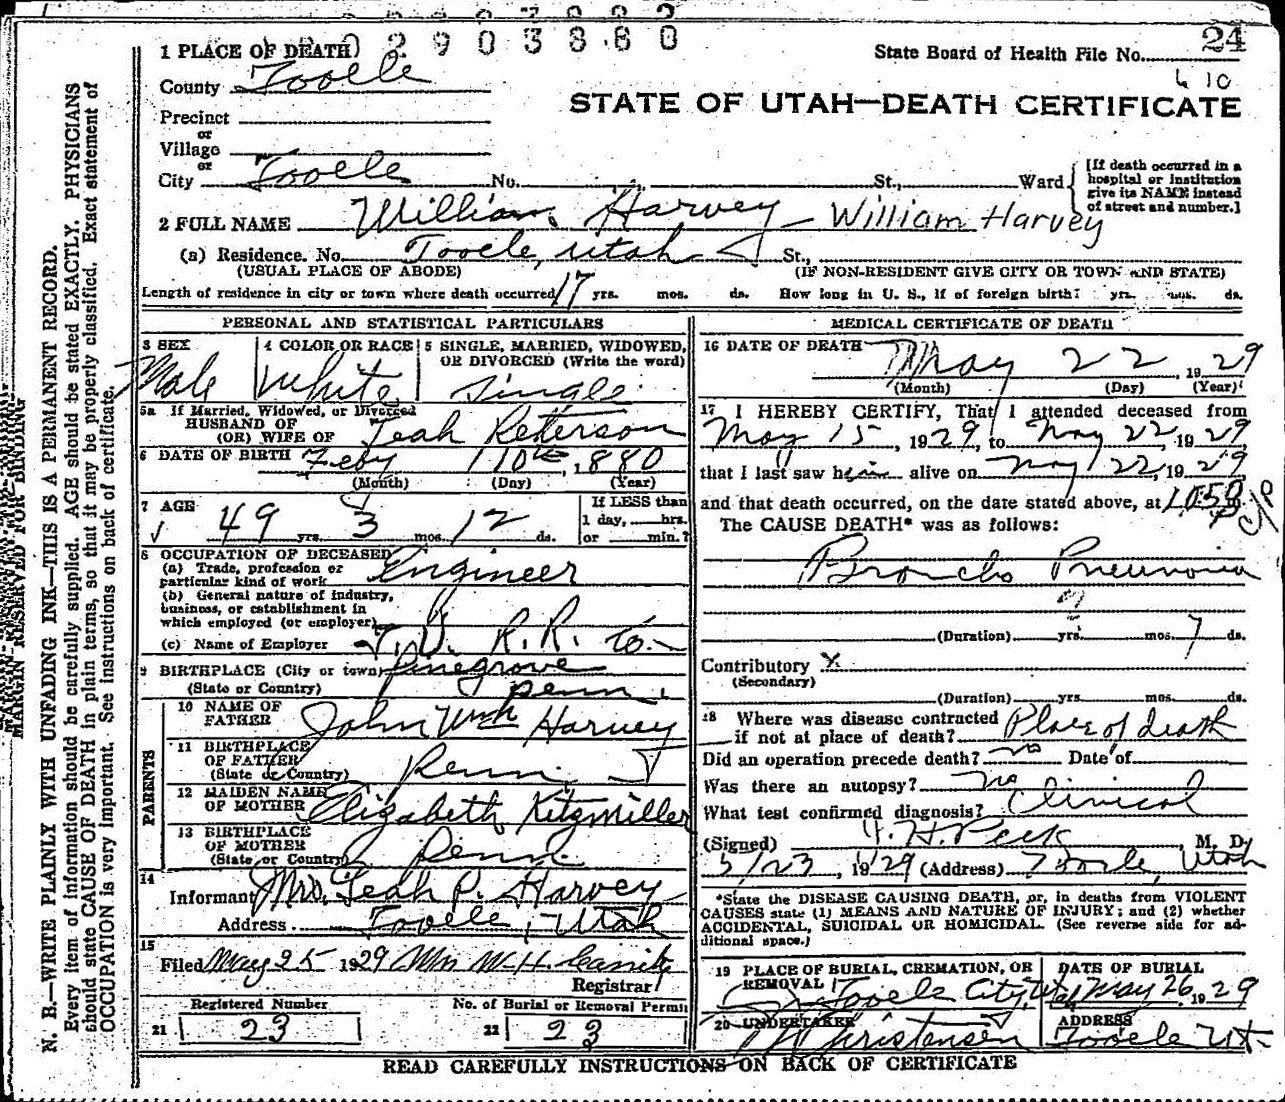 2903880
1 PLACE OF DEATH
State Board of Health File No. 24
County Tooele
6 10
STATE OF UTAH—DEATH CERTIFICATE
Precinct
or
Village
or
City Tooele No. St., Ward
[If death occurred in a
hospital or institution
give its NAME instead
of street and number.]
2 FULL NAME William Harvey - William Harvey
(a) Residence. No. Tooele, Utah St.,
(USUAL PLACE OF ABODE) (IF NON-RESIDENT GIVE CITY OR TOWN AND STATE)
Length of residence in city or town where death occurred 17 yrs. mos. ds. How long in U. S., if of foreign birth? yrs. mos. ds.
PERSONAL AND STATISTICAL PARTICULARS
3 SEX
Male
4 COLOR OR RACE
White
5 SINGLE, MARRIED, WIDOWED,
OR DIVORCED (Write the word)
Single
5a If Married, Widowed, or Divorced
HUSBAND OF
(OR) WIFE OF Leah Peterson
6 DATE OF BIRTH Feby 10th, 1880
(Month) (Day) (Year)
7 AGE
49 yrs. 3 mos. 12 ds.
If LESS than
1 day, hrs.
or min.?
8 OCCUPATION OF DECEASED
(a) Trade, profession or
particular kind of work Engineer
(b) General nature of industry,
business, or establishment in
which employed (or employer)
(c) Name of Employer T. V. R. R. Co.
9 BIRTHPLACE (City or town) Pinegrove
(State or Country) Penn.
PARENTS
10 NAME OF
FATHER John Wm Harvey
11 BIRTHPLACE
OF FATHER
(State or Country) Penn.
12 MAIDEN NAME
OF MOTHER Elizabeth Kitzmiller
13 BIRTHPLACE
OF MOTHER
(State or Country) Penn.
14
Informant Mrs. Leah P. Harvey
Address Tooele, Utah
15
Filed May 25 1929 Mrs W. H.
Registrar
Registered Number
21 23
No. of Burial or Removal Permit
22 23
MEDICAL CERTIFICATE OF DEATH
16 DATE OF DEATH
May 22, 1929
(Month) (Day) (Year)
17 I HEREBY CERTIFY, That I attended deceased from
May 15, 1929, to May 22, 1929,
that I last saw him alive on May 22, 1929
and that death occurred, on the date stated above, at 10:50 P m.
The CAUSE DEATH* was as follows:
Broncho Pneumonia
(Duration) yrs. mos. 7 ds.
Contributory
(Secondary)
(Duration) yrs. mos. ds.
18 Where was disease contracted
if not at place of death? Place of death
Did an operation precede death? no Date of
Was there an autopsy? no
What test confirmed diagnosis? Clinical
(Signed) J. H. Peck, M. D.
5/23, 1929 (Address) Tooele, Utah
*State the DISEASE CAUSING DEATH, or, in deaths from VIOLENT
CAUSES state (1) MEANS AND NATURE OF INJURY; and (2) whether
ACCIDENTAL, SUICIDAL OR HOMICIDAL. (See reverse side for ad-
ditional space.)
19 PLACE OF BURIAL, CREMATION, OR
REMOVAL
Tooele City, Ut
DATE OF BURIAL
May 26, 1929
20 UNDERTAKER
Christensen
ADDRESS
Tooele Ut.
READ CAREFULLY INSTRUCTIONS ON BACK OF CERTIFICATE
MARGIN RESERVED FOR BINDING
N. B.—WRITE PLAINLY WITH UNFADING INK—THIS IS A PERMANENT RECORD.
Every item of information should be carefully supplied. AGE should be stated EXACTLY. PHYSICIANS
should state CAUSE OF DEATH in plain terms, so that it may be properly classified. Exact statement of
OCCUPATION is very important. See instructions on back of certificate.